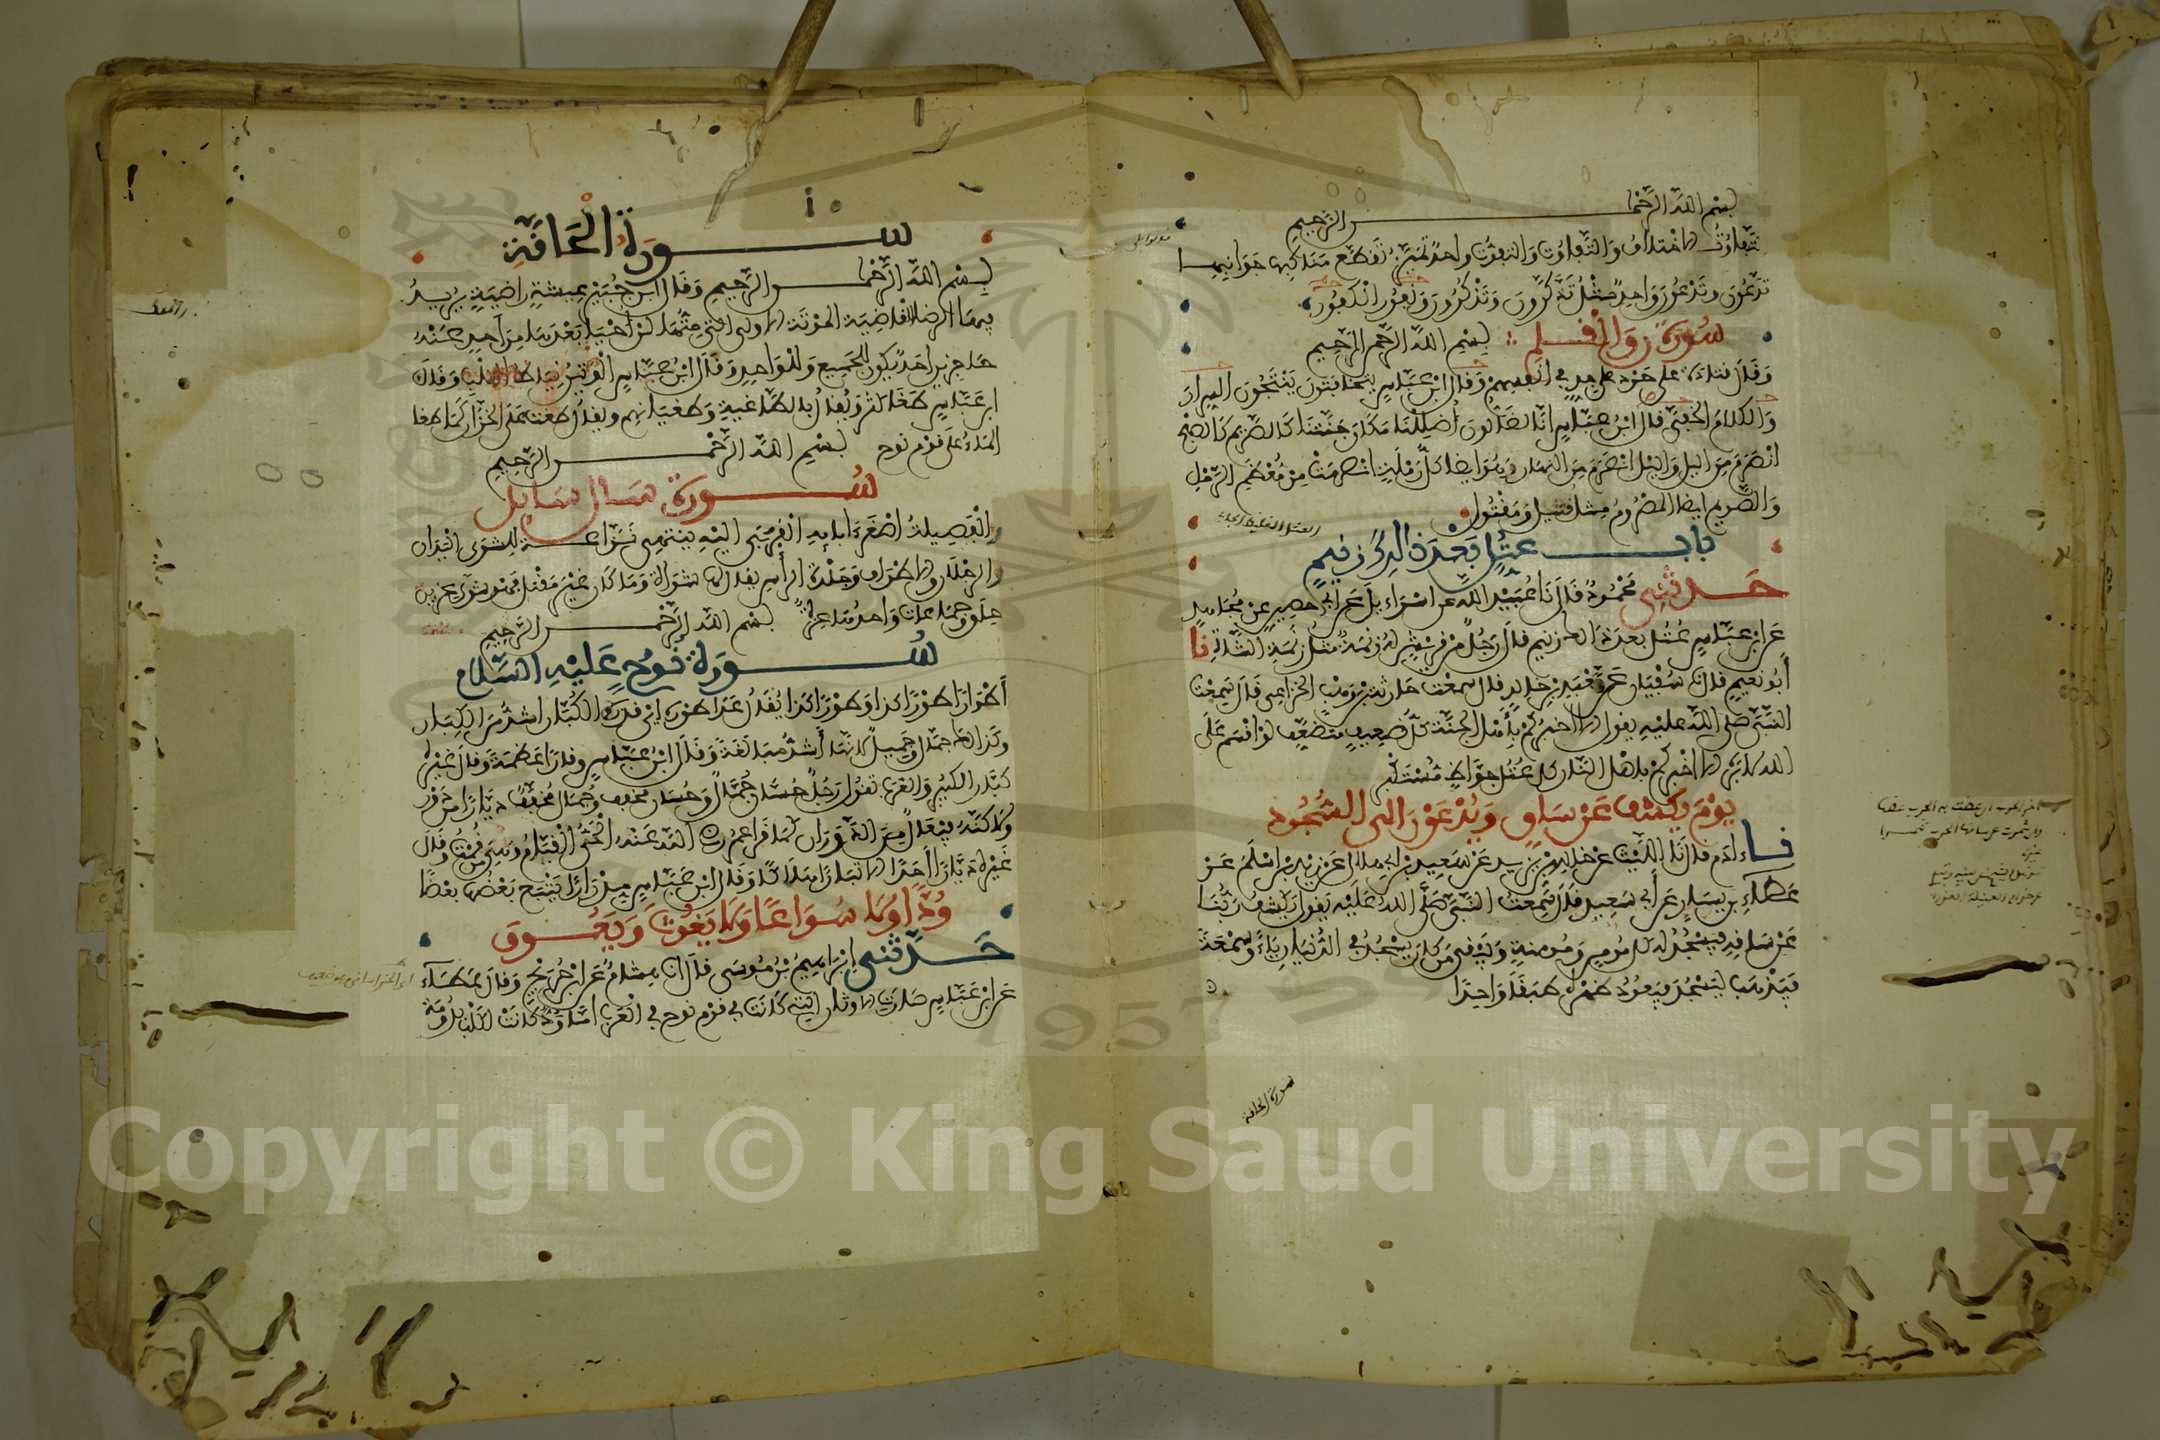 بسم الله الرحمن الرحيم
تفاوت الاختلاف والتفاوت والتفوت واحد تميز تقطع مناكبها جوانبها
تدعون وتدعون واحد مثل تذكرون وتذكرون ونفور الكفور
سورة ن والقلم بسم الله الرحمن الرحيم
وقال قتادة على حرد على جد في انفسهم وقال ابن عباس يتخافتون ينتجون السرار
والكلام الخفي قال ابن عباس انا لضالون اضللنا مكان جنتنا كالصريم كالصبح
انصرم من اليل واليل انصرم من النهار وهو ايضا كل رملة انصرمت من معظم الرمل
والصريم ايضا المصروم مثل قتيل ومقتول
باب عتل بعد ذلك زنيم
حدثني محمود قال نا عبيد الله عن اسراءيل عن ابي حصين عن مجاهد
عن ابن عباس عتل بعد ذلك زنيم قال رجل من قريش له زنمة مثل زنمة الشاة نا
أبو نعيم قال نا سفيان عن معبد بن خالد قال سمعت حارثة بن وهب الخزاعي قال سمعت
النبي صلى الله عليه يقول الا اخبركم بأهل الجنة كل ضعيف متضعف لو اقسم على
الله لابره الا اخبركم باهل النار كل عتل جواظ مستكبر
يوم يكشف عن ساق ويدعون الى السجود
نا ءادم قال نا الليث عن خالد بن يزيد عن سعيد بن ابي هلال عن زيد بن اسلم عن
عطاء بن يسار عن أبي سعيد قال سمعت النبي صلى الله عليه يقول يكشف ربنا
عن ساقه فيسجد له كل مومن ومومنة ويبقى من كان يسجد في الدنيا رياء وسمعة
فيذهب ليسجد فيعود ظهره طبقا واحدا
سورة الحاقة
سورة الحاقة
بسم الله الرحمن الرحيم وقال ابن جبير عيشة راضية يريد
فيها الرضا القاضية الموتة الاولى التي متها لن احيا بعدها من احد عنه
حاجزين احد يكون للجميع وللواحد وقال ابن عباس الوتين نياط القلب وقال
ابن عباس طغا كثر ويقال بالطاغية وطغيانهم ويقال طغت على الخزان كما طغا
الماء على قوم نوح بسم الله الرحمن الرحيم
سورة سال سايل
والفصيلة اصغر ءابايه القربى اليه ينتمي نزاعة للشوى اليدان
والرجلان والاطراف وجلدة الرأس يقال لها شواة وما كان غير مقتل فهو شوى عزين
حلق وجماعات واحدها عزة بسم الله الرحمن الرحيم
سورة نوح عليه السلام
أطوارا طورا كذا وطورا كذا يقال عدا طوره اي قدره الكبار اشد من الكبار
وكذلك جمال وجميل لانها أشد مبالغة وقال ابن عباس وقارا عظمة وقال غيره
كبار الكبير والعرب تقول رجل حسان جمال وحسان مخفف وجمال مخفف ديارا من دور
ولكنه فيعال من الدوران كما قرا عمر الله عنه الحي القيام وهي من قمت وقال
غيره ديارا أحدا تبارا هلاكا وقال ابن عباس مدرارا يتبع بعضها بعضا
ودا ولا سواعا ولا يغوث ويعوق
حدثني ابراهيم بن موسى قال نا هشام عن ابن جريج وقال عطاء
عن ابن عباس صارت الاوثان التي كانت في قوم نوح في العرب اما ود كانت لكلب بدومة
Copyright © King Saud University
1957